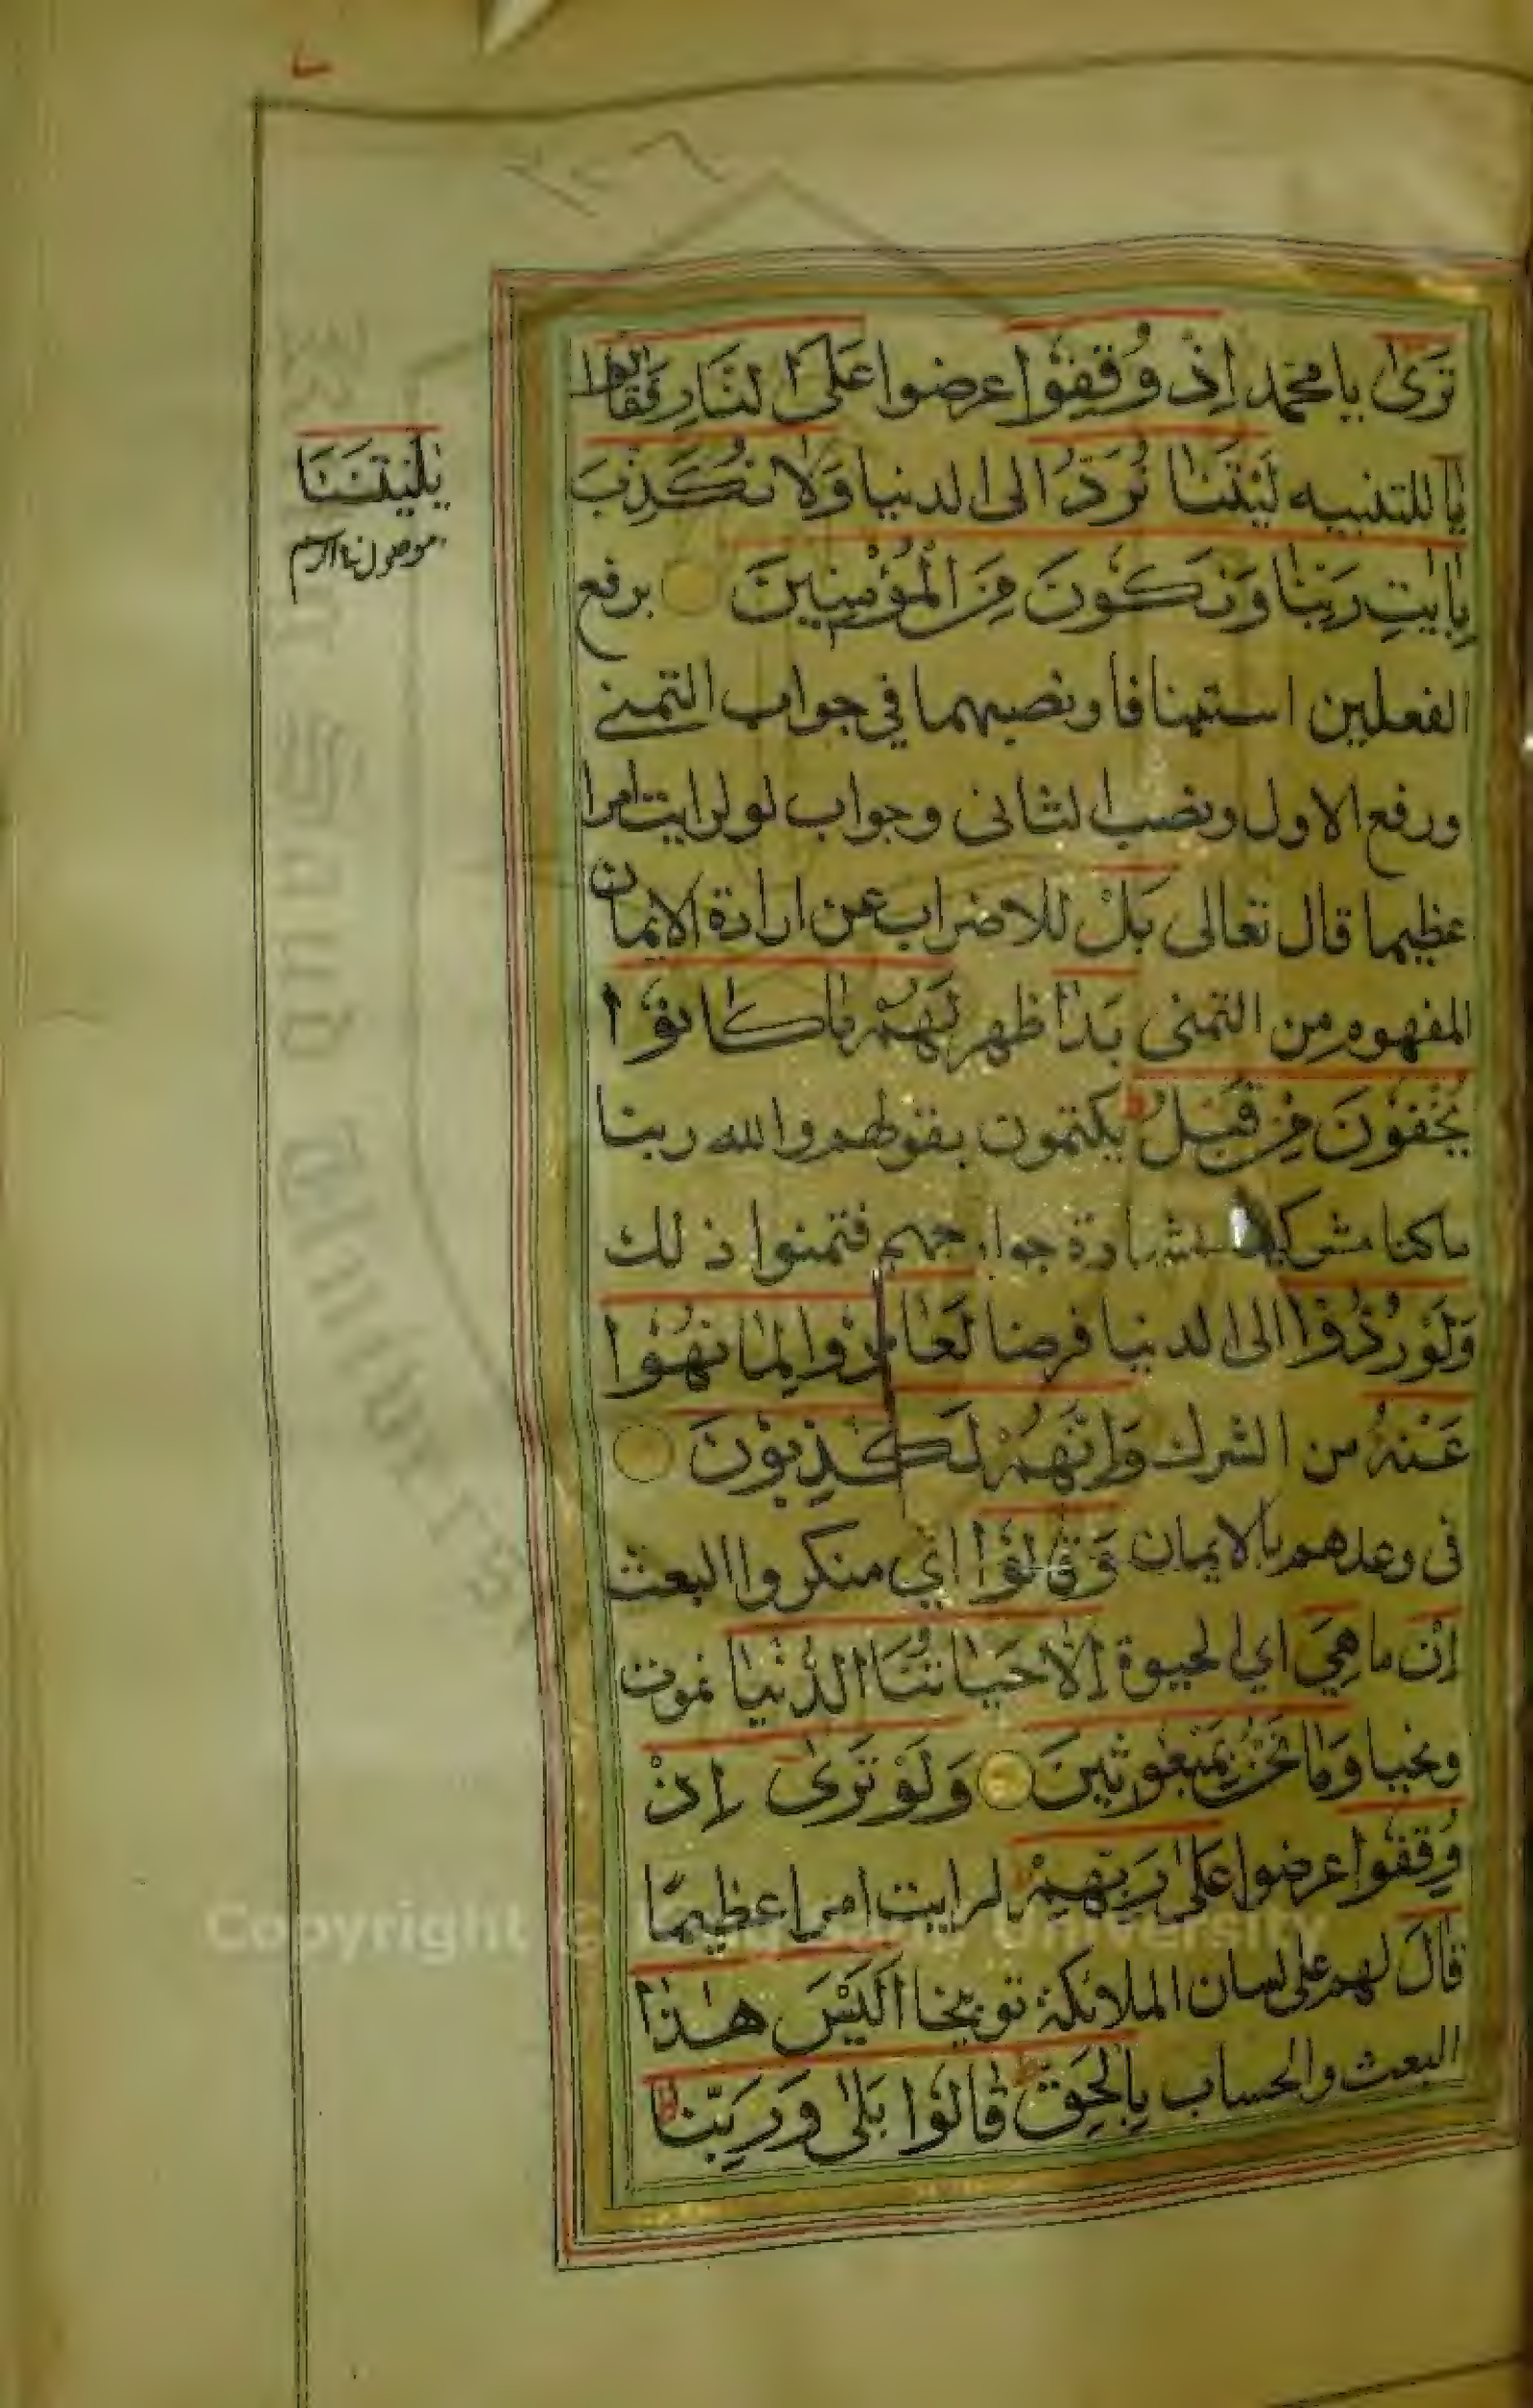 تَرَىٰ يا محمد إِذْ وُقِفُوْا عرضوا عَلَى النَّارِ فَقَالُوا
يَا للتنبيه لَيْتَنَا نُرَدُّ الى الدنيا وَلَا نُكَذِّبَ
بِاٰيٰتِ رَبِّنَا وَنَكُوْنَ مِنَ الْمُؤْمِنِيْنَ برفع
الفعلين استينافا ونصبهما في جواب التمني
ورفع الاول ونصب الثانى وجواب لو لرايت امرا
عظيما قال تعالى بَلْ للاضراب عن ارادة الايمان
المفهوم من التمنى بَدَا ظهر لَهُمْ مَا كَانُوْا
يُخْفُوْنَ مِنْ قَبْلُ يكتمون بقولهم والله ربنا
ما كنا مشركين بشهادة جوارحهم فتمنوا ذلك
وَلَوْ رُدُّوْا الى الدنيا فرضا لَعَادُوْا لِمَا نُهُوْا
عَنْهُ من الشرك وَاِنَّهُمْ لَكٰذِبُوْنَ
فى وعدهم بالايمان وَقَالُوْا اي منكروا البعث
اِنْ ما هِيَ اي الحيوة اِلَّا حَيَاتُنَا الدُّنْيَا نموت
ونحيا وَمَا نَحْنُ بِمَبْعُوْثِيْنَ وَلَوْ تَرَىٰ اِذْ
وُقِفُوا عرضوا عَلىٰ رَبِّهِمْ لرايت امرا عظيمًا
قَالَ لهم على لسان الملائكة توبيخا اَلَيْسَ هٰذَا
البعث والحساب بِالْحَقِّ قَالُوْا بَلٰى وَرَبِّنَا
يٰلَيْتَنَا
موصول بنا الرسم
Copyright © King Saud University